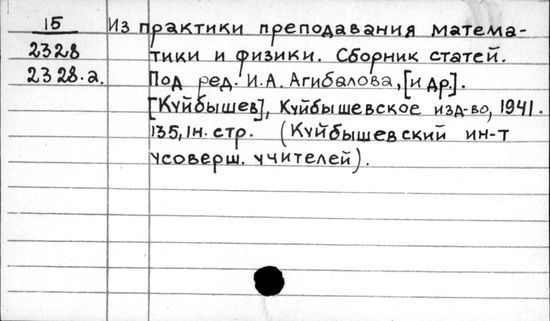 15 Из практики преподавания матема-
2328 тики и физики. Сборник статей.
2328-а. Под ред. И.А. Агибалова, [и др].
[Куйбышев], Куйбышевское изд-во, 1941.
135, 1н. стр. (Куйбышевский ин-т
усоверш. учителей).